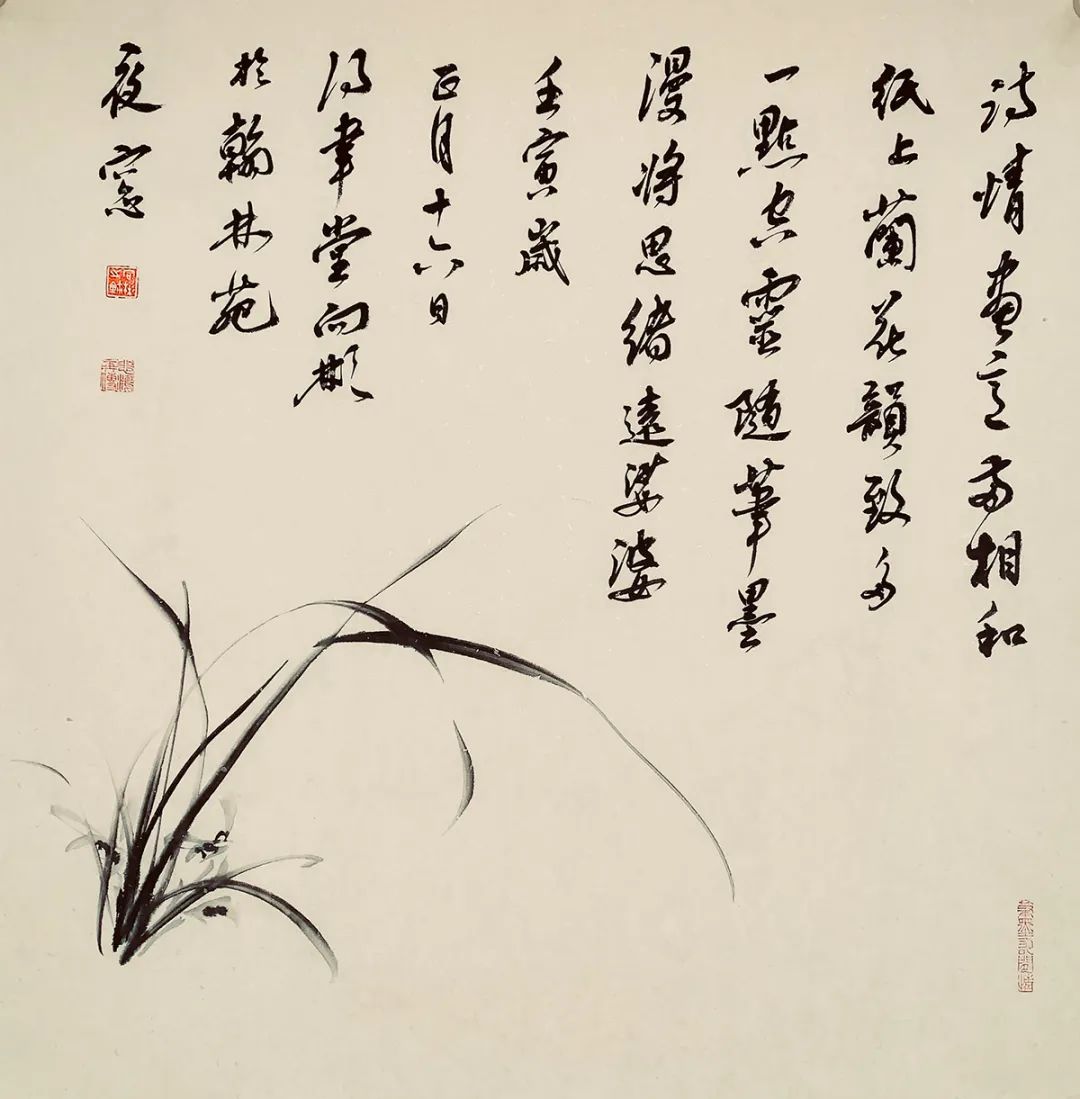 詩情畫意两相和
紙上蘭花韻致多
一點空靈隨筆墨
漫將思緒遠娑婆
壬寅歲
正月十六日
得聿堂向彬
於翰林苑
夜窓